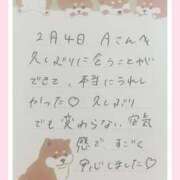 2月4日 Aさんへ
久しぶりに会うことが
できて、本当にうれし
かった♡ 久しぶり
でも変わらない空気
感で、すごく
安心しました♡